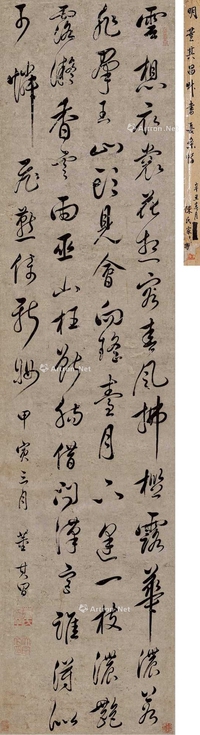 雲想衣裳花想容春風拂檻露華濃若
非羣玉山頭見會向瑤臺月下逢一枝濃艷
露凝香雲雨巫山枉斷腸借問漢宮誰得似
可憐飛燕倚新妝 甲寅三月 董其昌
明 董其昌
Artron.Net